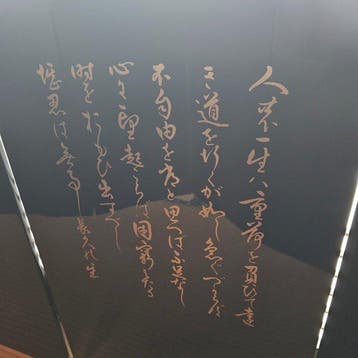 人の一生ハ重荷を負て遠
き道を行くが如し急ぐべからず
不自由を常と思へば不足なし
心に望起らば困窮したる
時をおもひ出すべし
堪忍は無事長久の基